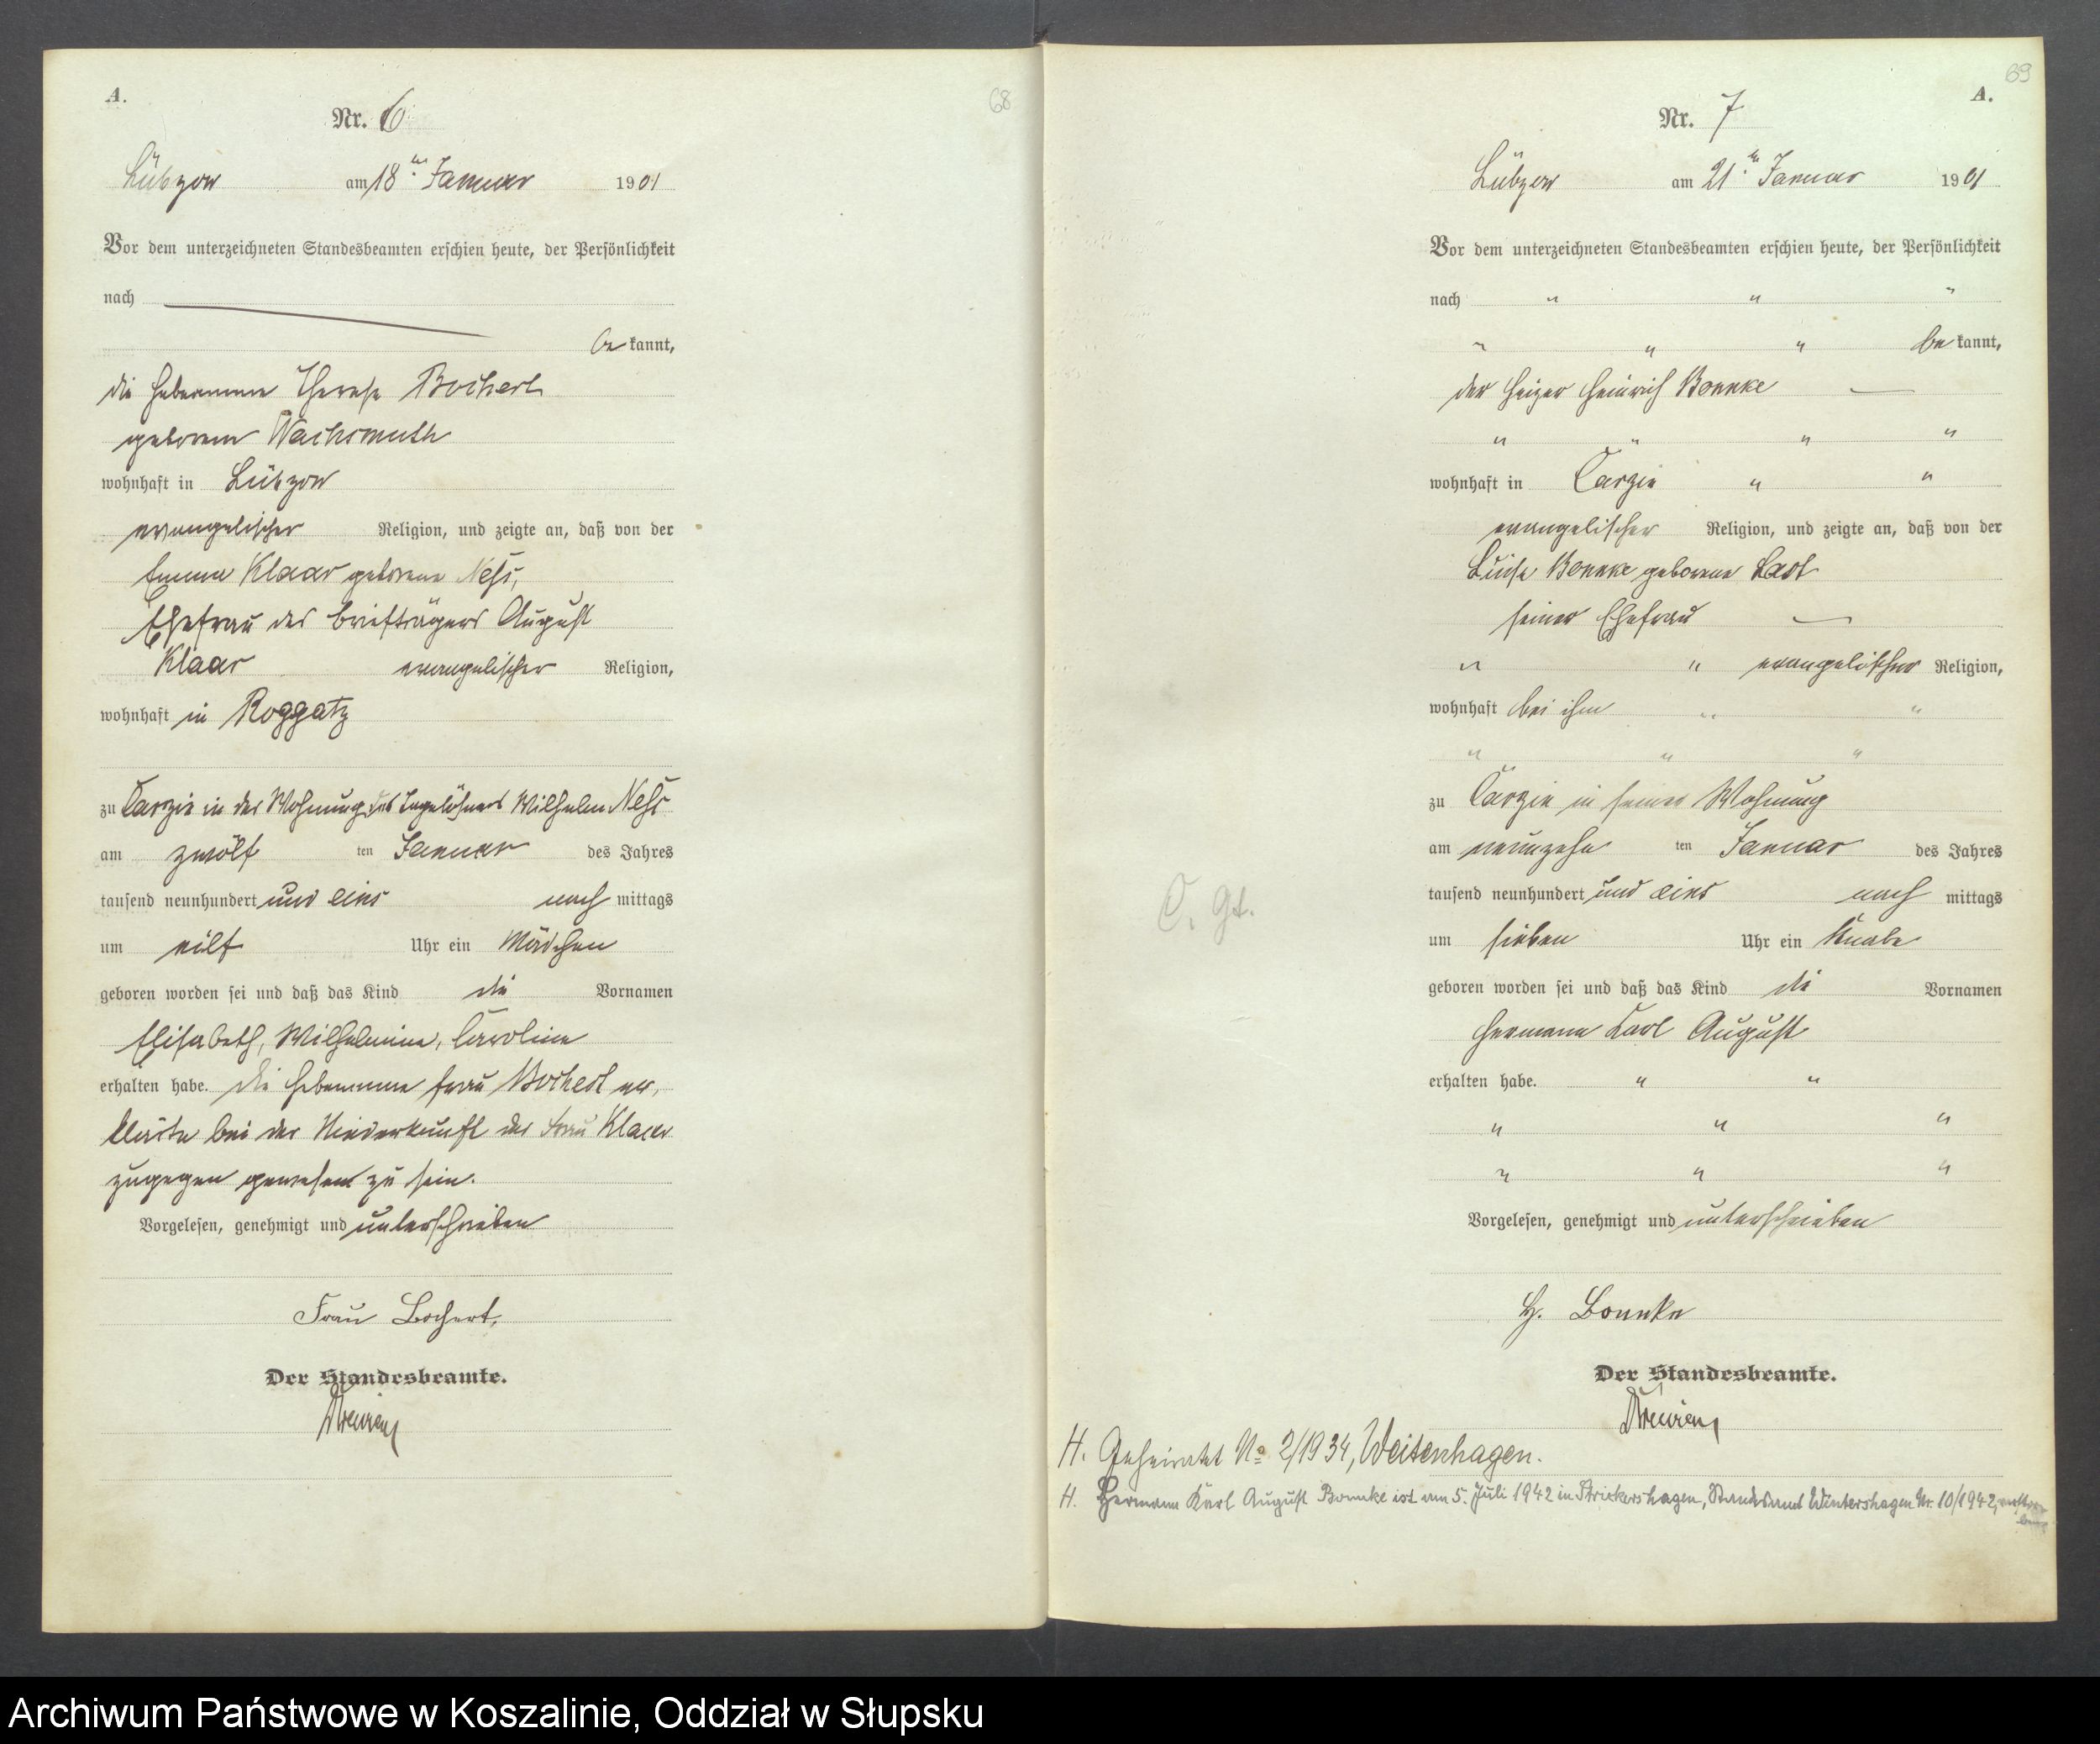 A.
68
Nr. 6
Lübzow am 18ten Januar 1901
Vor dem unterzeichneten Standesbeamten erschien heute, der Persönlichkeit
nach
be kannt,
die Hebeamme Therese Bochert
geborene Wachsmuth
wohnhaft in Lübzow
evangelischer Religion, und zeigte an, daß von der
Emma Klaar geborene Neß,
Ehefrau des Briefträgers August
Klaar evangelischer Religion,
wohnhaft in Roggatz
zu Carzin in der Wohnung des Tagelöhners Wilhelm Neß
am zwölf ten Januar des Jahres
tausend neunhundert und eins nach mittags
um eilf Uhr ein Mädchen
geboren worden sei und daß das Kind die Vornamen
Elisabeth, Wilhelmine, Caroline
erhalten habe. Die Hebeamme Frau Bochert er,
klärte bei der Niederkunft der Frau Klaar
zugegen gewesen zu sein.
Vorgelesen, genehmigt und unterschrieben
Frau Bochert.
Der Standesbeamte.
69
A.
Nr. 7
Lübzow am 21ten Januar 1901
Vor dem unterzeichneten Standesbeamten erschien heute, der Persönlichkeit
nach " " "
" " " be kannt,
der Heizer Heinrich Bonnke
" " " "
wohnhaft in Carzin " "
evangelischer Religion, und zeigte an, daß von der
Luise Bonnke geborene Last
seiner Ehefrau
" " evangelischer Religion,
wohnhaft bei ihm " "
" " "
zu Carzin in seiner Wohnung
am neunzehn ten Januar des Jahres
tausend neunhundert und eins nach mittags
um sieben Uhr ein Knabe
geboren worden sei und daß das Kind die Vornamen
Hermann Karl August
erhalten habe. " "
" " "
" " "
Vorgelesen, genehmigt und unterschrieben
H. Bonnke
Der Standesbeamte.
H. Geheiratet No 2/1934, Weitenhagen.
H. Hermann Karl August Bonnke ist am 5. Juli 1942 in Strickershagen, Standesamt Wintershagen Nr. 10/1942, verstor-
ben
Archiwum Państwowe w Koszalinie, Oddział w Słupsku